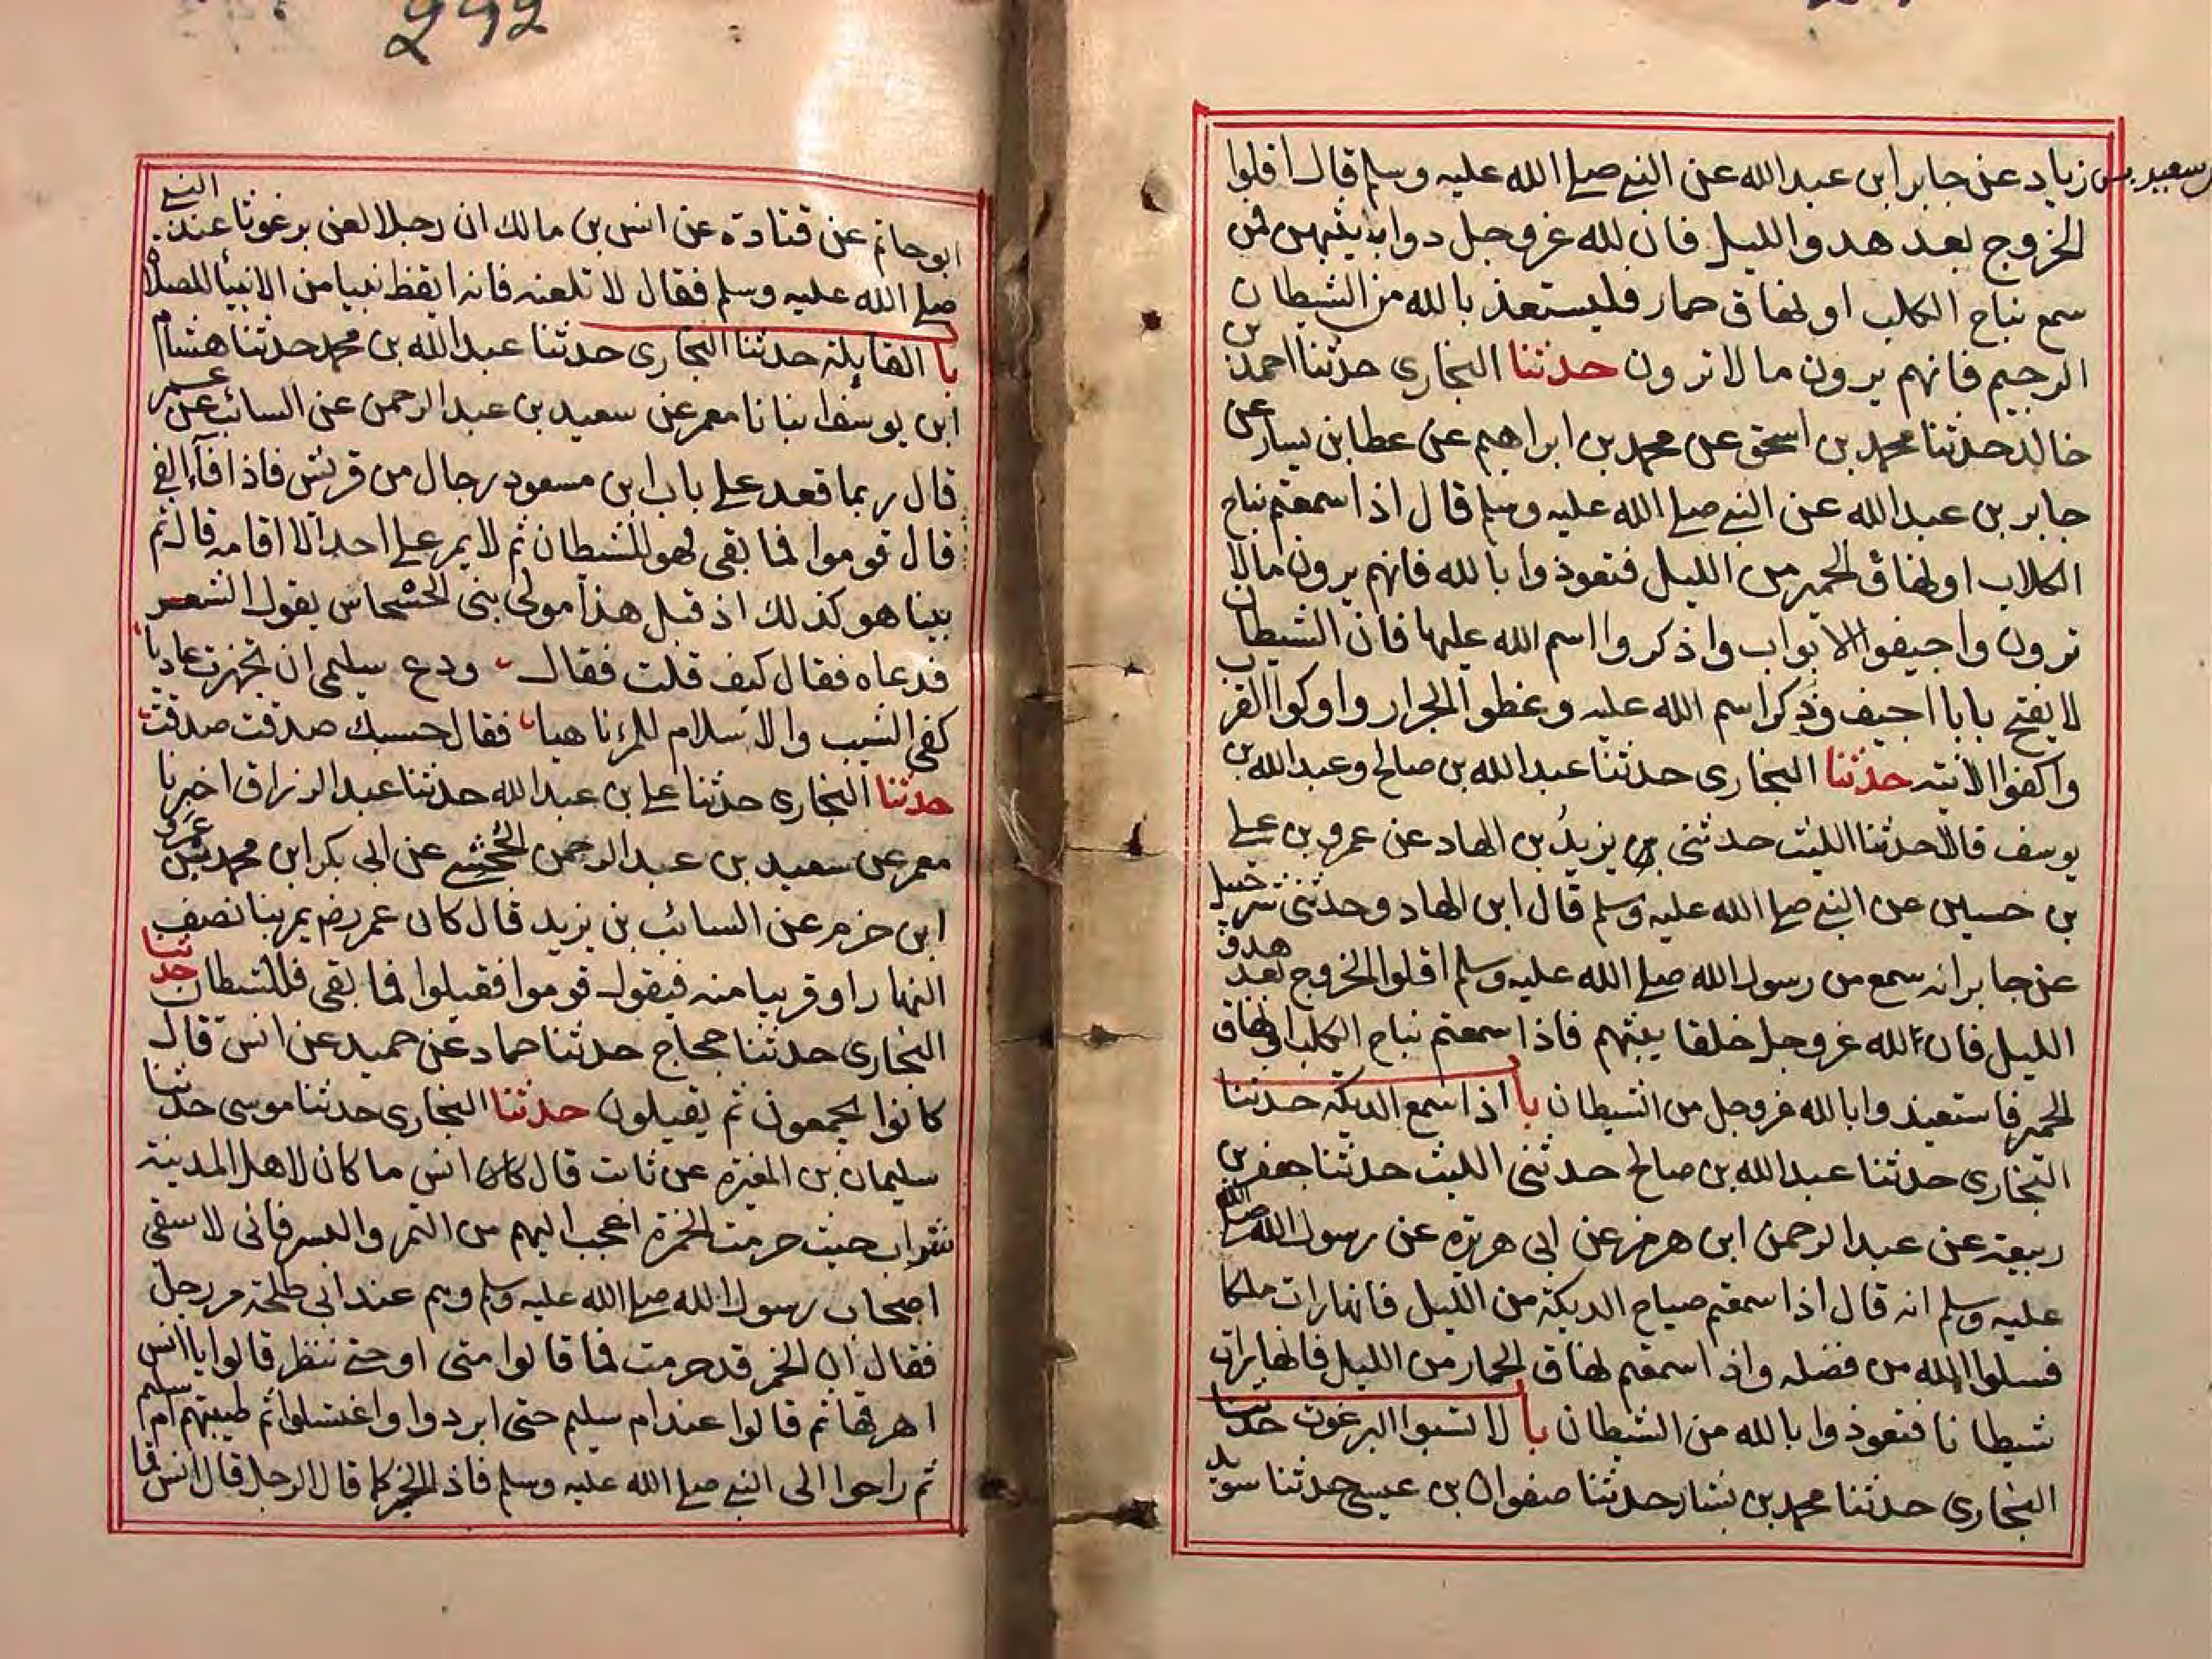 سعيد بن زياد عن جابر ابن عبد الله عن النبي صلى الله عليه وسلم قال اقلوا
الخروج بعد هدو الليل فان لله عز وجل دواب يبثهن فمن
سمع نباح الكلب او نهاق حمار فليستعذ بالله من الشيطان
الرجيم فانهم يرون ما لا ترون حدثنا البخاري حدثنا احمد بن
خالد حدثنا محمد بن اسحق عن محمد بن ابراهيم عن عطا بن يسار عن
جابر بن عبد الله عن النبي صلى الله عليه وسلم قال اذا سمعتم نباح
الكلاب او نهاق الحمير من الليل فتعوذوا بالله فانهم يرون ما لا
ترون واجيفوا الابواب واذكروا اسم الله عليها فان الشيطان
لا يفتح بابا اجيف وذكر اسم الله عليه وغطوا الجرار واوكوا القرب
واكفوا الانيه حدثنا البخاري حدثنا عبد الله بن صالح وعبد الله بن
يوسف قالا حدثنا الليث حدثني يزيد بن الهاد عن عمرو بن علي
بن حسين عن النبي صلى الله عليه وسلم قال ابن الهاد وحدثني شرحبيل
عن جابر انه سمع من رسول الله صلى الله عليه وسلم اقلوا الخروج بعد هدو
الليل فان لله عز وجل خلقا يبثهم فاذا سمعتم نباح الكلب او نهاق
الحمير فاستعيذوا بالله عز وجل من الشيطان با اذا سمع الديكه حدثنا
البخاري حدثنا عبد الله بن صالح حدثني الليث حدثنا جعفر بن
ربيعة عن عبد الرحمن ابن هرمز عن ابي هريره عن رسول الله صلى الله
عليه وسلم انه قال اذا سمعتم صياح الديكة من الليل فانها رات ملكا
فسلوا الله من فضله واذا سمعتم نهاق الحمار من الليل فانها رات
شيطانا فتعوذوا بالله من الشيطان با لا تسبوا البرغوث حدثنا
البخاري حدثنا محمد بن بشار حدثنا صفوان بن عيسى حدثنا سويد
292
ابو حاتم عن قتادة عن انس بن مالك ان رجلا لعن برغوثا عند النبي
صلى الله عليه وسلم فقال لا تلعنه فانه ايقظ نبيا من الانبيا للصلاة
با القايلة حدثنا البخاري حدثنا عبد الله بن محمد حدثنا هشام
ابن يوسف انبانا معمر عن سعيد بن عبد الرحمن عن السائب عن عمر
قال ربما قعد على باب ابن مسعود رجال من قريش فاذا فآء الفي
قال قوموا فما بقي فهو للشيطان ثم لا يمر على احد الا اقامه قال ثم
بينا هو كذلك اذ قيل هذا مولى بني الحسحاس يقول الشعر
فدعاه فقال كيف قلت فقال ودع سليمى ان تجهزت غاديا
كفى الشيب والاسلام للمرء ناهيا فقال حسبك صدقت صدقت
حدثنا البخاري حدثنا علي بن عبد الله حدثنا عبد الرزاق اخبرنا
معمر عن سعيد بن عبد الرحمن الجحشي عن ابي بكر ابن محمد بن عمرو
ابن حزم عن السائب بن يزيد قال كان عمر رضي يمر بنا نصف
النهار او قريبا منه فيقول قوموا فقيلوا فما بقي فللشيطان حدثنا
البخاري حدثنا حجاج حدثنا حماد عن حميد عن انس قال
كانوا يجمعون ثم يقيلون حدثنا البخاري حدثنا موسى حدثنا
سليمان بن المغيرة عن ثابت قال قال انس ما كان لاهل المدينة
شراب حيث حرمت الخمرة اعجب اليهم من التمر والبسر فاني لاسقي
اصحاب رسول الله صلى الله عليه وسلم وهم عند ابي طلحة مر رجل
فقال ان الخمر قد حرمت فما قالوا متى او حتى ننظر قالوا يا انس
اهرقها ثم قالوا عند ام سليم حتى ابردوا واغتسلوا ثم طيبتهم ام سليم
ثم راحوا الى النبي صلى الله عليه وسلم فاذا الخبر كما قال الرجل قال انس فما